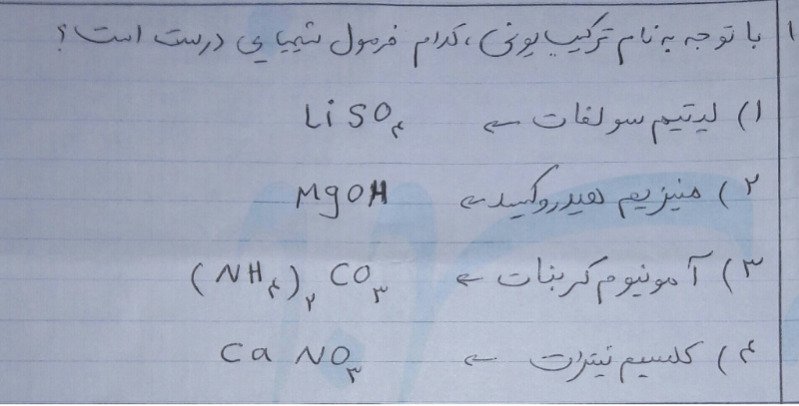 ۱ با توجه به نام ترکیب یونی، کدام فرمول شیمیایی درست است؟
۱) لیتیم سولفات ← LiSO۴
۲) منیزیم هیدروکسید ← MgOH
۳) آمونیوم کربنات ← (NH۴)۲ CO۳
۴) کلسیم نیترات ← Ca NO۳